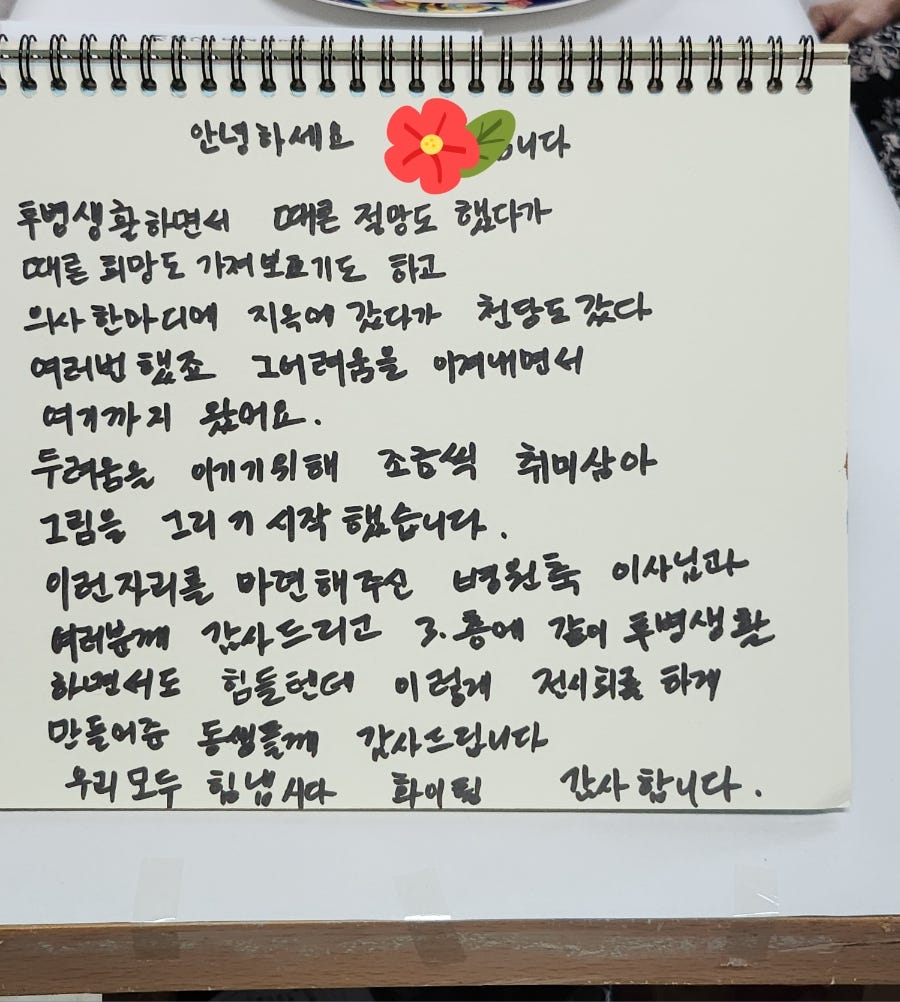 안녕하세요 니다
투병생활하면서 때론 절망도 했다가
때론 희망도 가져보고기도 하고
의사 한마디에 지옥에 갔다가 천당도 갔다
여러번 했죠 그어려움을 이겨내면서
여기까지 왔어요.
두려움을 이기기위해 조금씩 취미삼아
그림을 그리기 시작 했습니다.
이런자리를 마련해주신 병원측 이사님과
여러분께 감사드리고 3.층에 같이 투병생활
하면서도 힘들텐데 이렇게 전시회를 하게
만들어준 동생들께 감사드립니다
우리모두 힘냅시다 화이팅 감사합니다.